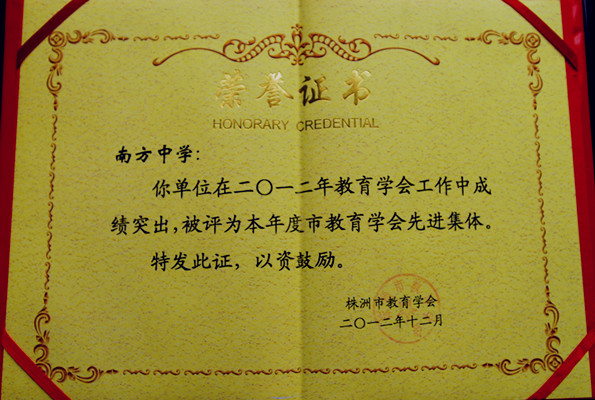 荣誉证书
HONORARY CREDENTIAL
南方中学：
你单位在二〇一二年教育学会工作中成
绩突出，被评为本年度市教育学会先进集体。
特发此证，以资鼓励。
株洲市教育学会
二〇一二年十二月